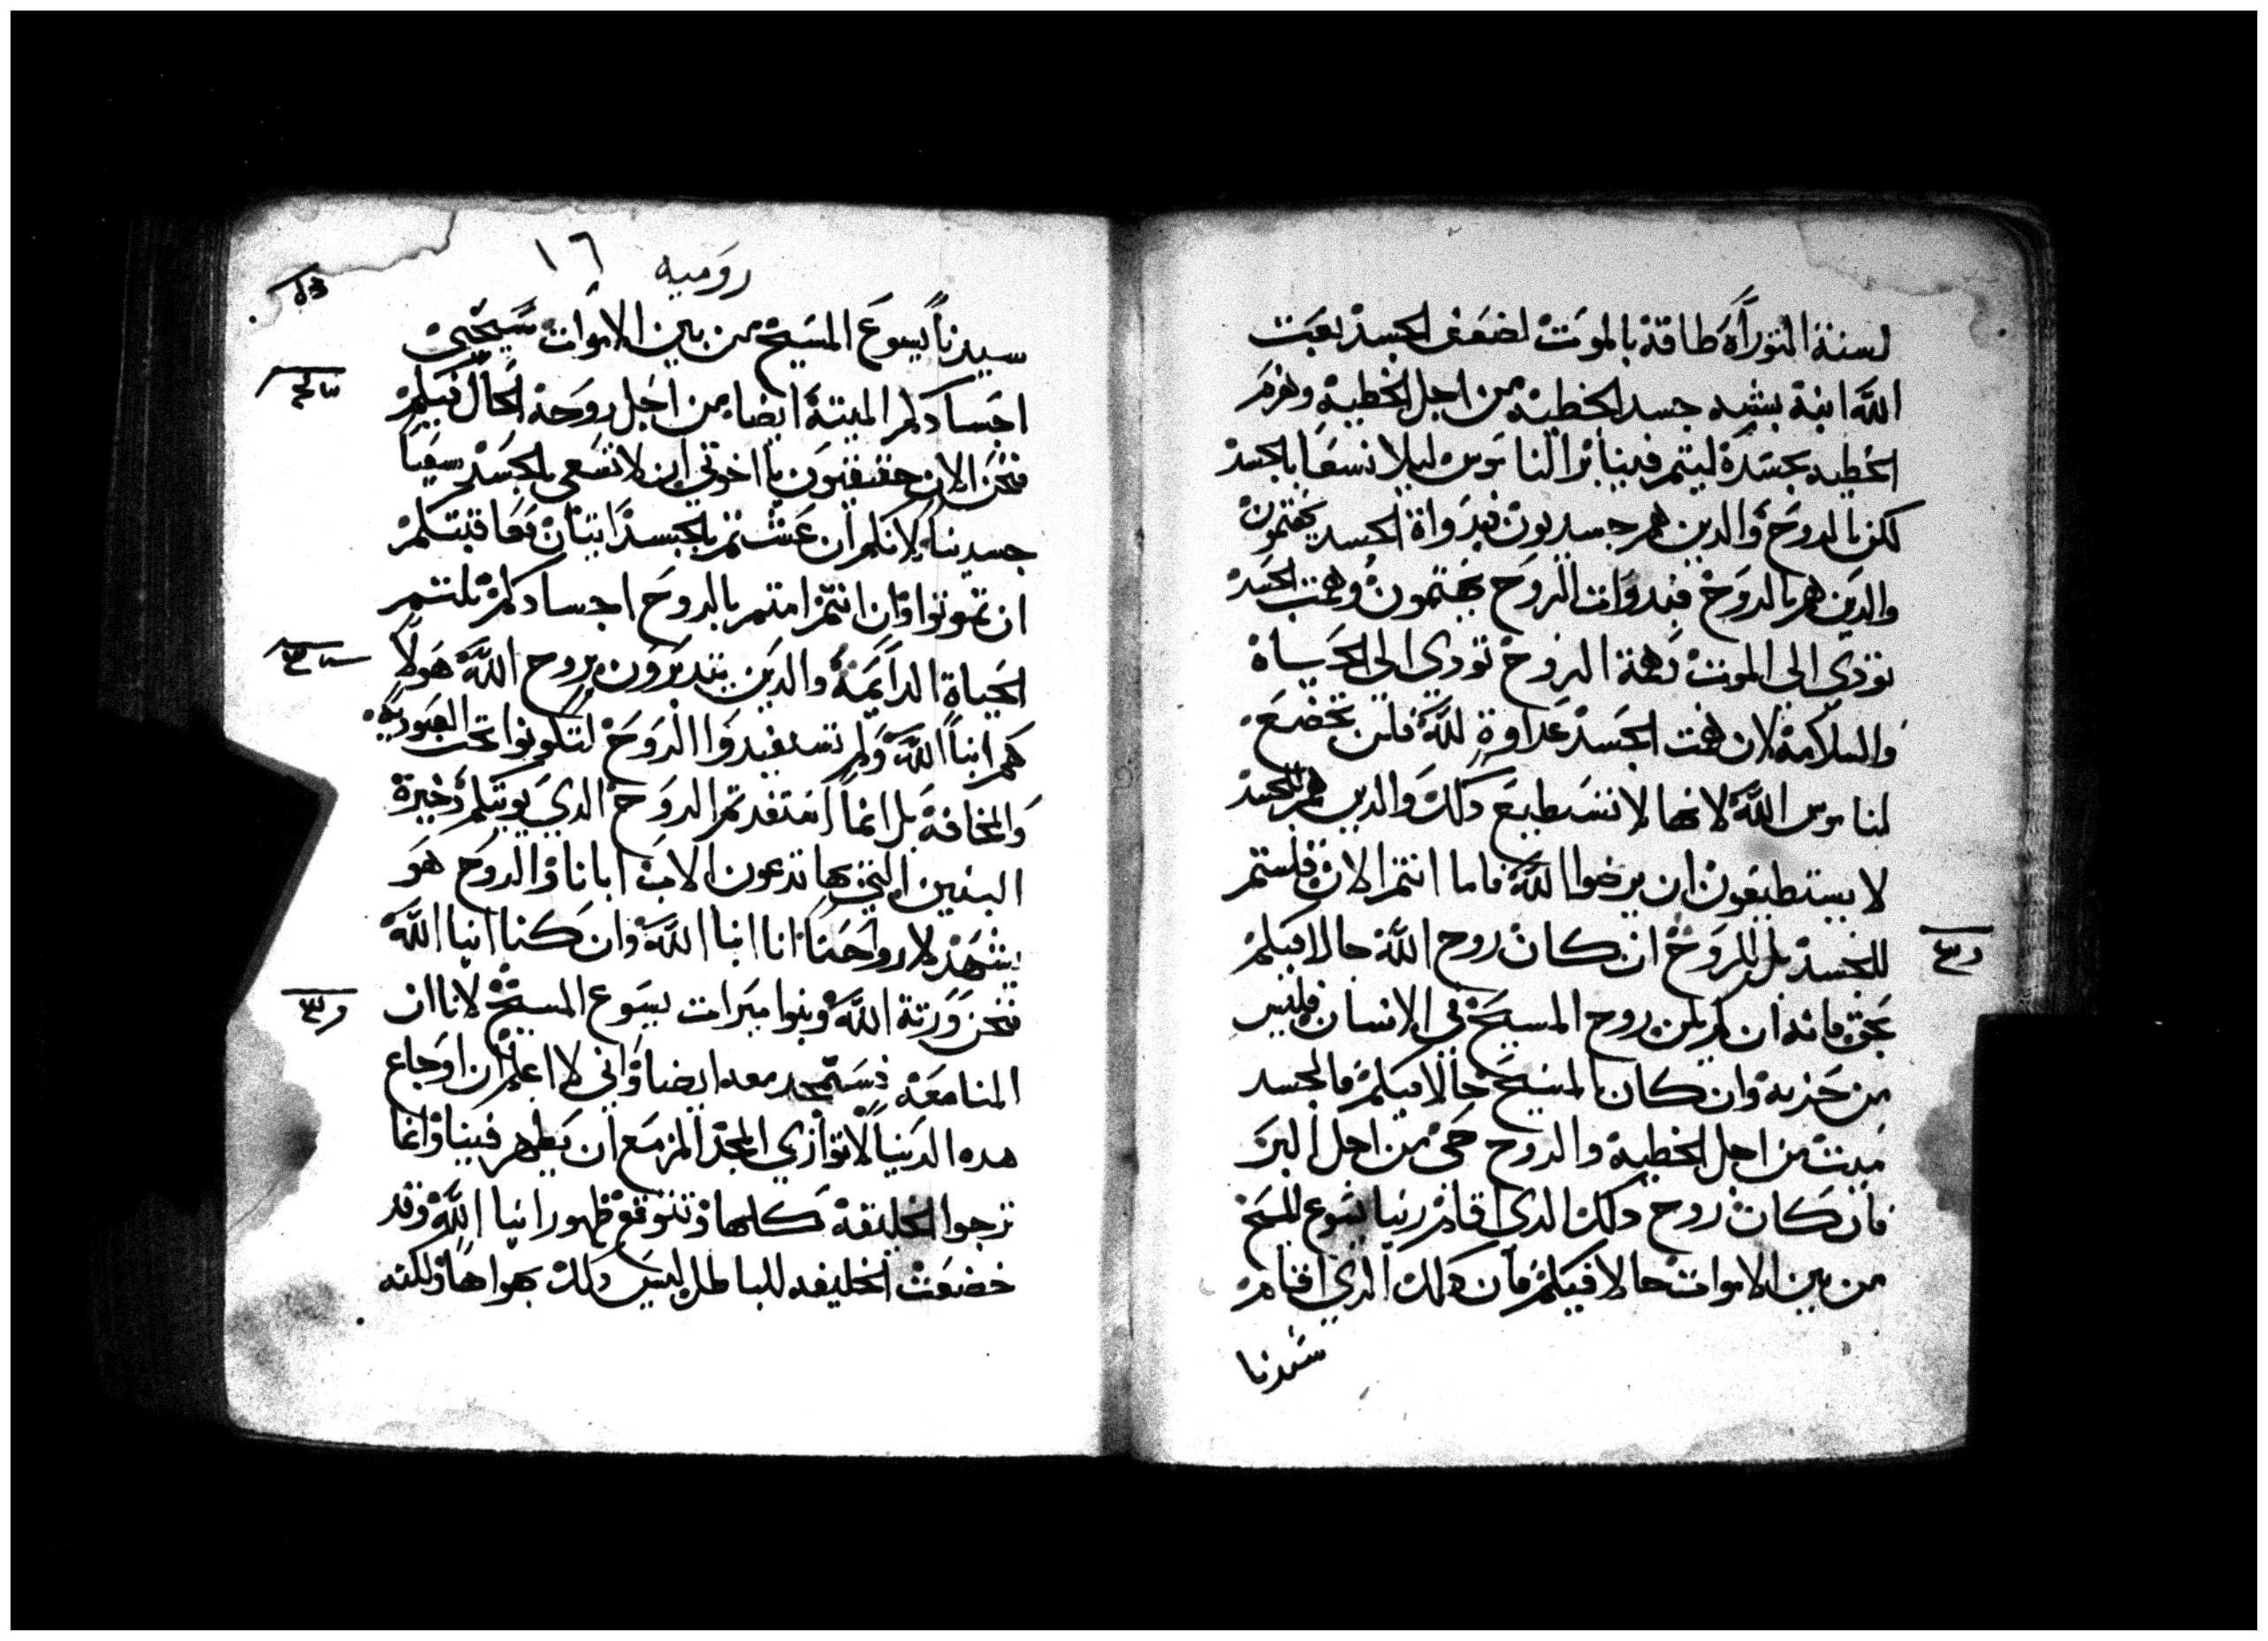 لسنة التوراة طاقة بالموت لضعف الجسد بعت
الله ابنة بشبه جسد الخطية من اجل الخطية وهزم
الخطيه بجسدة ليتم فينا بر الناموس ليلا نسعا بالجسد
لكن بالروح والدين هم جسديون فبدواة الجسد يهتمون
والدين هم بالروح فبدوات الروح يهتمون وهمت الجسد
تودي الي الموت وهمة الروح تودي الي الحياة
والسلامة لان همت الجسد عداوة لله فلن تخضع
لناموس الله لانها لا تستطيع دلك والدين هم بالجسد
لا يستطيعون ان يرضوا الله فاما انتم الان فلستم
للجسد بل للروح ان كان روح الله حالا فيكم
بحق فانه ان لم يكن روح المسيح في الانسان فليس
من حزبه وان كان المسيح حالا فيكم فالجسد
ميت من اجل الخطية والروح حي من اجل البر
فان كان روح دلك الدي اقام ربنا يسوع المسيح
من بين الاموات حالا فيكم فان دلك الدي اقام
سيدنا
رومية
١٦
سيدنا يسوع المسيح من بين الاموات سيحيي
اجسادكم الميتة ايضا من اجل روحة الحال فيكم
فنحن الان حقيقيون يا اخوتي ان لا نسعي بالجسد سعيا
جسدينا لانكم ان عشتم بالجسد انتان تعاقبتكم
ان تموتوا وان انتم امتم بالروح اجسادكم نلتم
الحياة الدايمة والدين يتدبرون بروح الله هولا
هم ابنا الله ولم تستفيدوا الروح لتكونوا تحت العبودية
والمخافة بل انما استفدتم الروح الدي يوتيكم دخيرة
البنين التي بها تدعون الاب ابانا والروح هو
يشهد لارواحنا انا ابنا الله وان كنا ابنا الله
فنحن ورتة الله وبنوا ميرات يسوع المسيح لانا ان
المنا معه فسنتمجد معه ايضا واني لا اعلم ان اوجاع
هده الدنيا لا توازي المجد المزمع ان يظهر فينا وانما
ترجوا الخليقة كلها وتتوقع ظهور ابنا الله وقد
خضعت الخليقه للباطل ليس دلك بهواها ولكنه